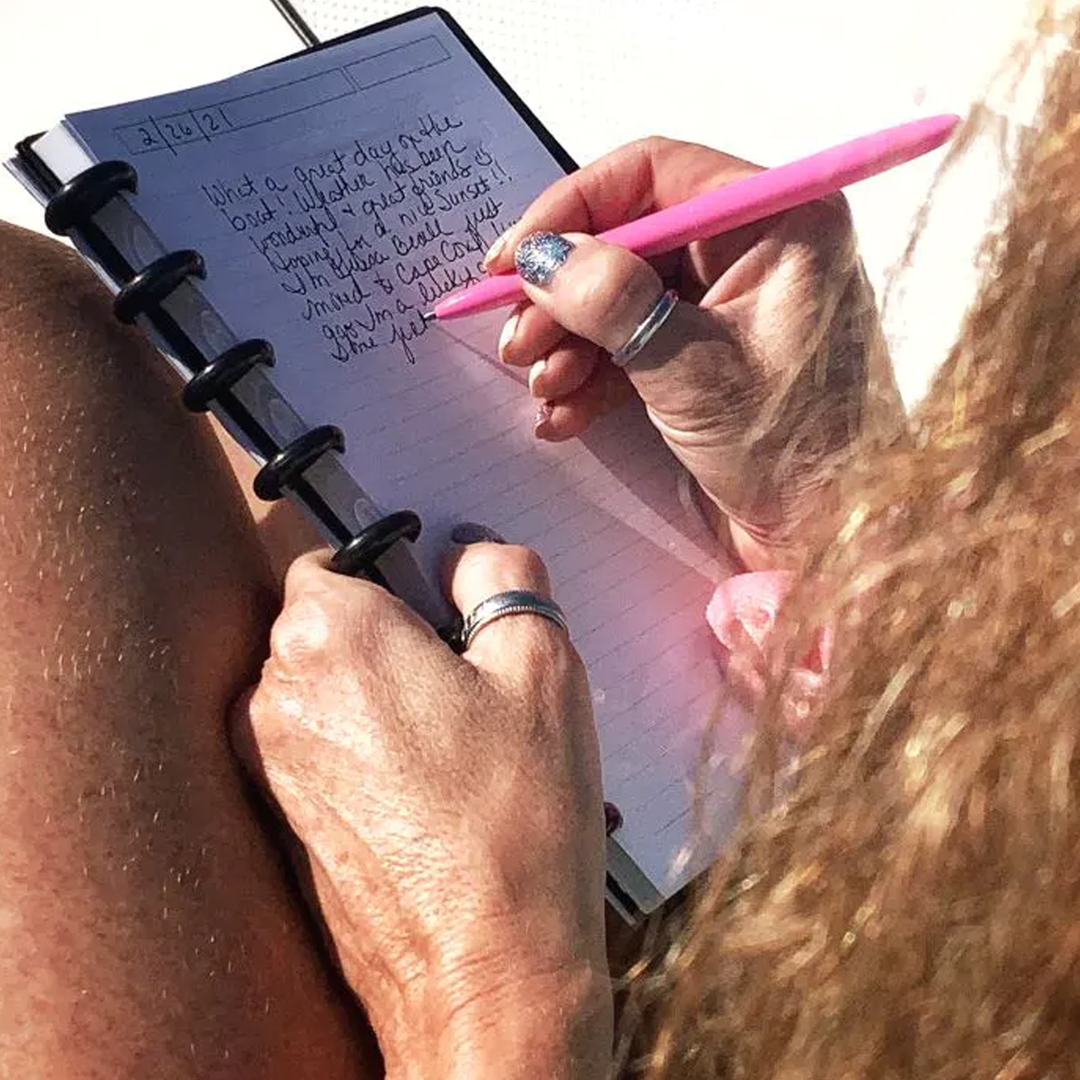 2/26/21
What a great day on the
boat! Weather has been
wonderful & great friends
Hoping for a nice Sunset!!
I'm Beale just
moved to Cape
I'm a lucky
Some